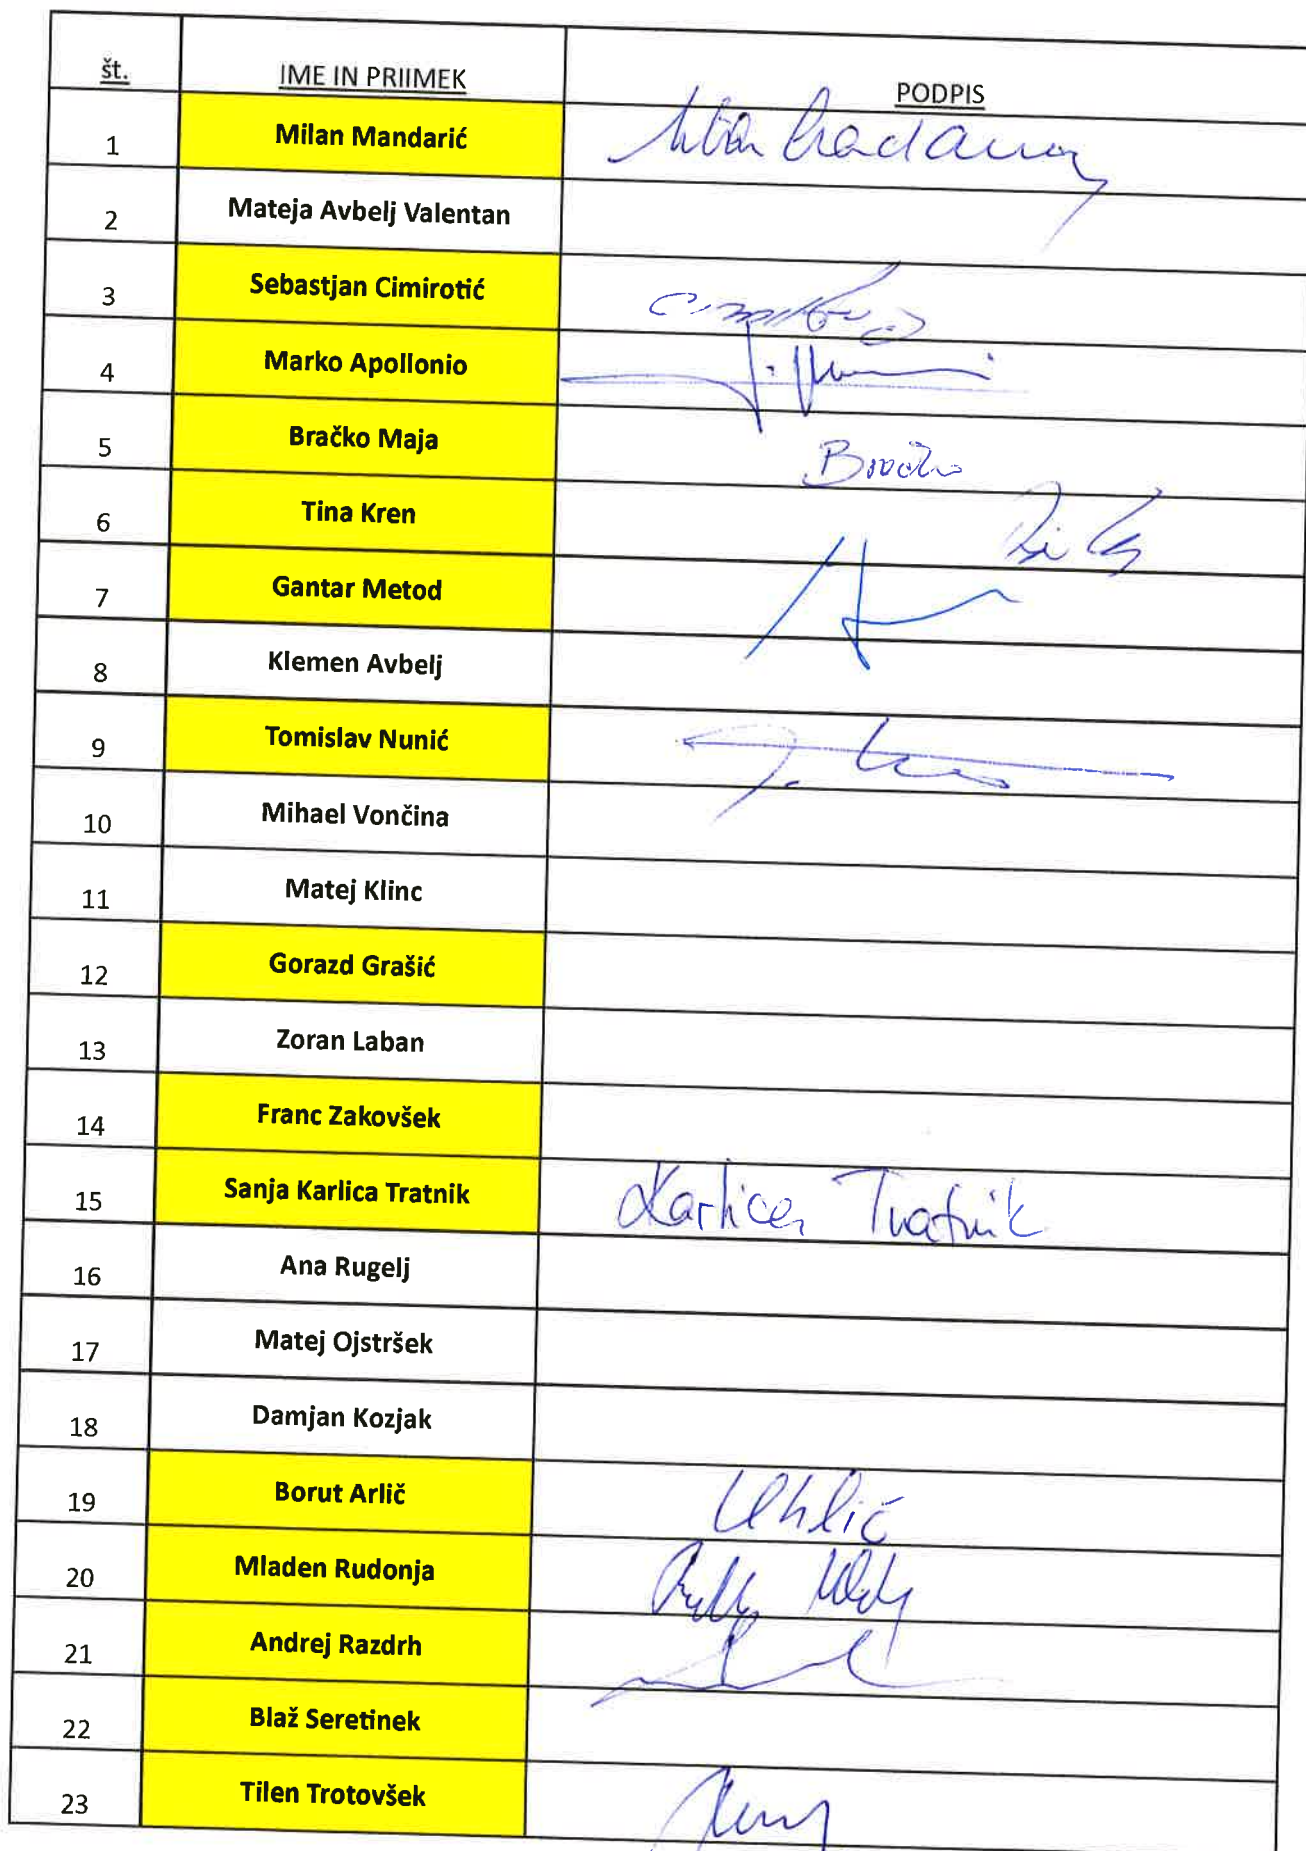 št. IME IN PRIIMEK PODPIS
1 Milan Mandarić
2 Mateja Avbelj Valentan
3 Sebastjan Cimirotić
4 Marko Apollonio
5 Bračko Maja Bračko
6 Tina Kren
7 Gantar Metod
8 Klemen Avbelj
9 Tomislav Nunić
10 Mihael Vončina
11 Matej Klinc
12 Gorazd Grašić
13 Zoran Laban
14 Franc Zakovšek
15 Sanja Karlica Tratnik Karlica Tratnik
16 Ana Rugelj
17 Matej Ojstršek
18 Damjan Kozjak
19 Borut Arlič
20 Mladen Rudonja
21 Andrej Razdrh
22 Blaž Seretinek
23 Tilen Trotovšek